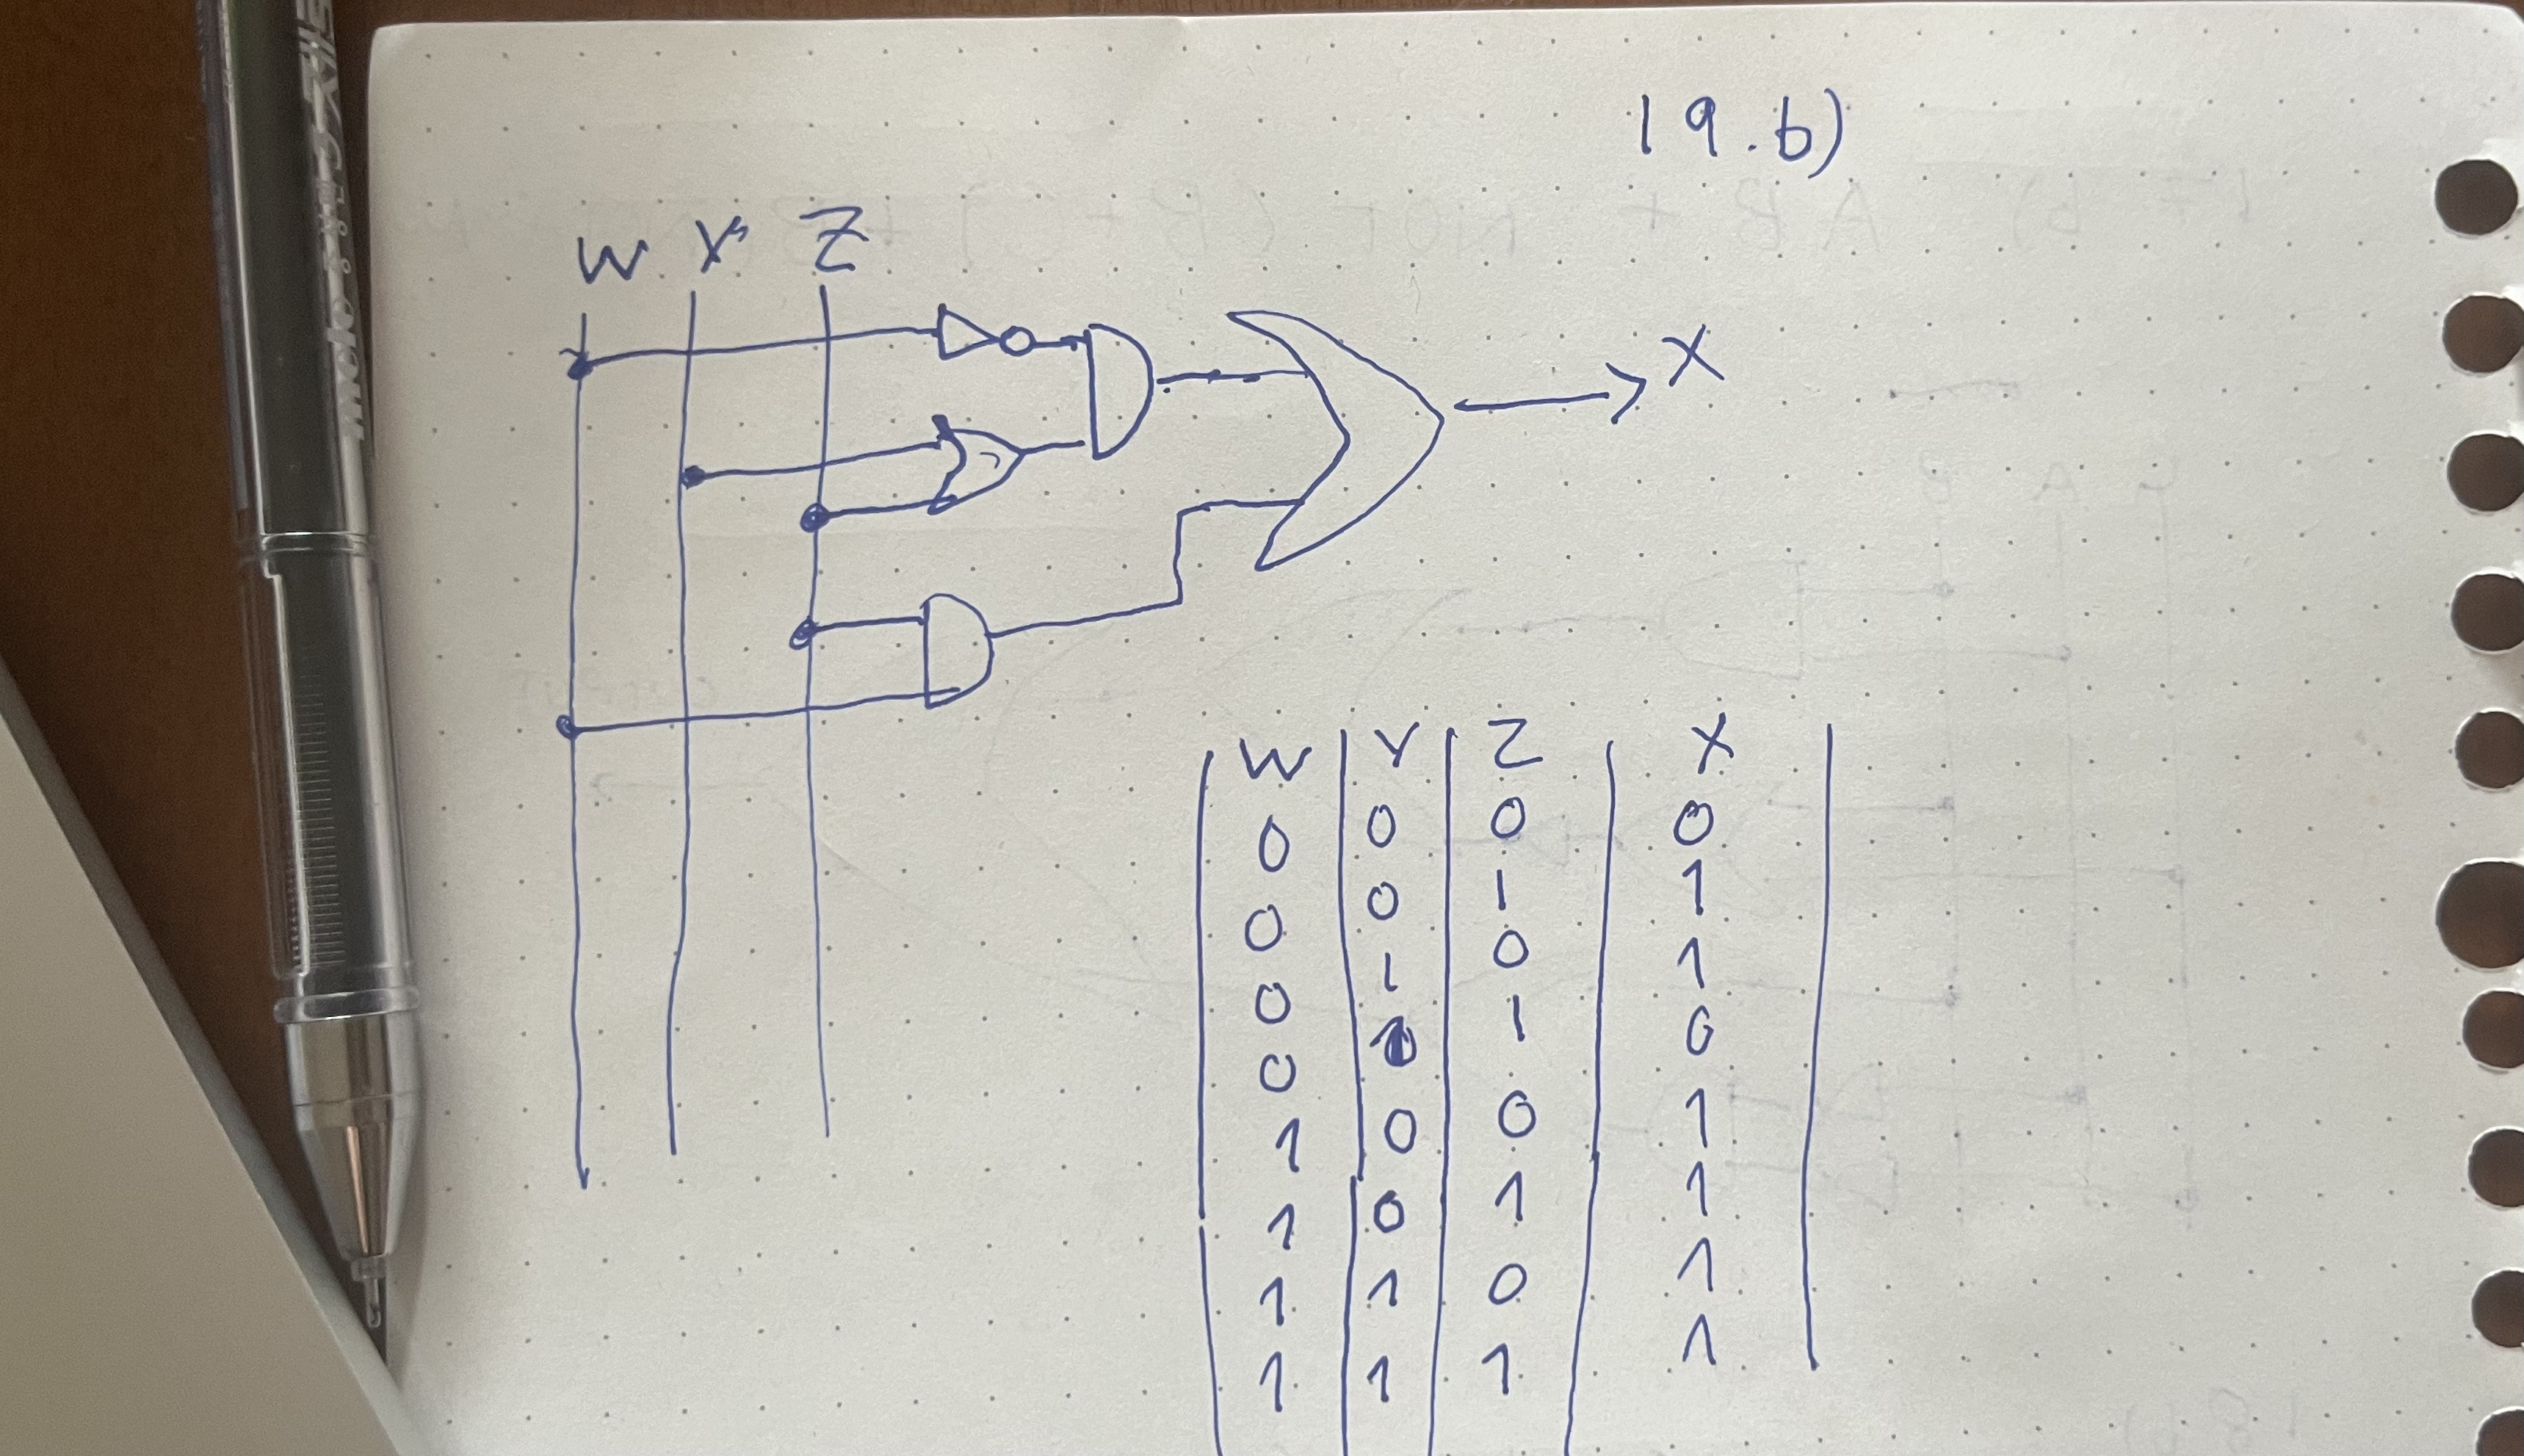 19.b)
W Y Z
X
W Y Z X
0 0 0 0
0 0 1 1
0 1 0 1
0 1 1 0
1 0 0 1
1 0 1 1
1 1 0 1
1 1 1 1